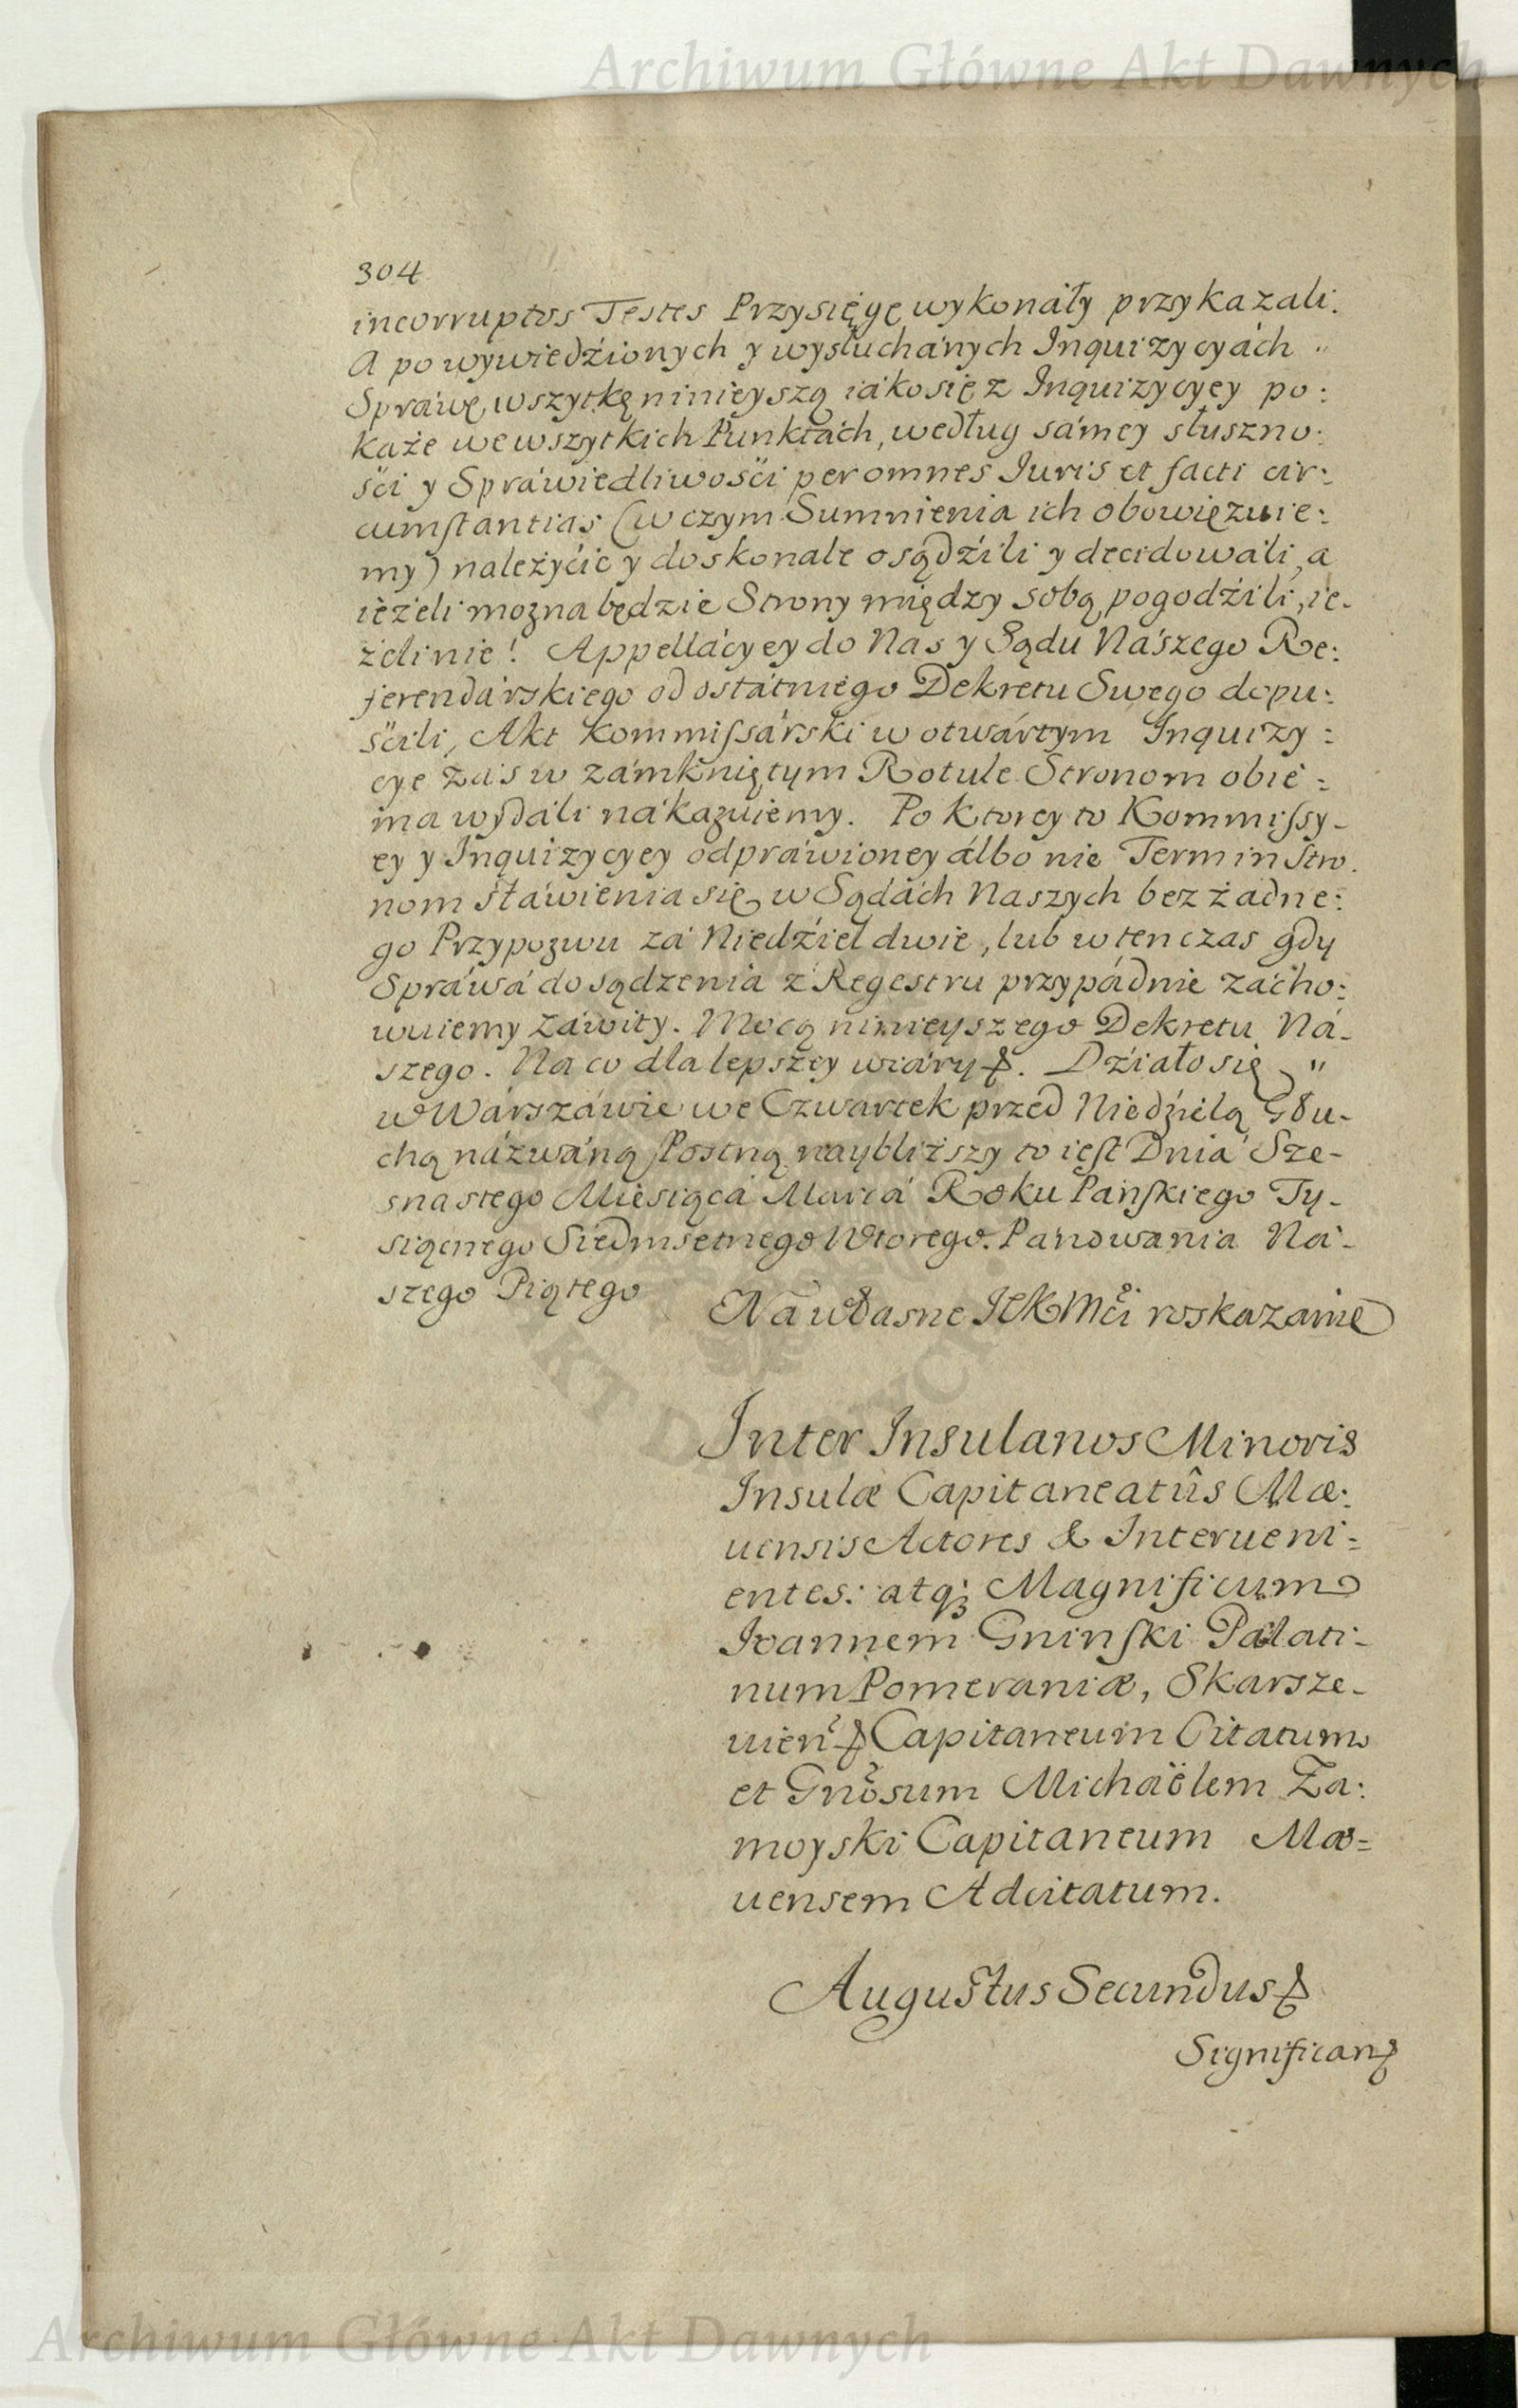 Archiwum Główne Akt Dawnych
304
incorruptos Testes Przysięgę wykonáły przykazali.
A po wywiedźionych y wysłuchánych Inquizycyách "
Spráwę wszytkę ninieyszą iáko się z Inquizycyey po:
każe we wszytkich Punktách, według sámey słuszno:
ści y Spráwiedliwości per omnes Iuris et facti cir:
cumstantias (w czym Sumnienia ich obowięzuie:
my) należyćie y doskonale osądźili y decidowáli, a
ieżeli mozna będzie Strony między sobą pogodźili, ie-
żeli nie! Appellácyey do Nas y Sądu Nászego Re:
ferendárskiego od ostátniego Dekretu Swego dopu:
śćili, Akt Kommissárski w otwártym Inquizy:
cye záś w zámkniętym Rotule Stronom obie=
ma wydáli nákazuiemy. Po ktorey to Kommissy-
ey y Inquizycyey odpráwioney álbo nie Termin Stro.
nom stáwienia się w Sądách Naszych bez żadne:
go Przypozwu zá Niedźiel dwie, lub w ten czas gdy
Spráwá do sądzenia z Regestru przypádnie zácho:
wuiemy Záwity. Mocą ninieyszego Dekretu Ná-
szego. Na co dla lepszey wiáry &. Dźiało się "
w Wárszáwie we Czwartek przed Niedźielą Głu-
chą názwáną Postną naybliższy to iest Dniá Sze-
snastego Miesiącá Marcá Roku Pańskiego Ty-
siącnego Siedmsetnego Wtorego. Pánowania Ná-
szego Piątego
Na własne JEKMći roskazanie
Inter Insulanos Minoris
Insulæ Capitaneatûs Mæ:
uensis Actores & Interueni=
entes: atq; Magnificum
Ioannem Gninski Palati-
num Pomeraniæ, Skarsze-
uien & Capitaneum Citatum
et Gnosum Michaëlem Za:
moyski Capitaneum Mæ=
uensem Adcitatum.
Augustus Secundus &
Significam &
Archiwum Główne Akt Dawnych